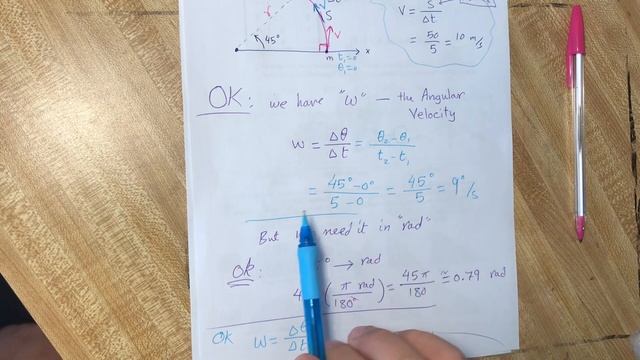 r
S
V
45°
m
t₁=0
x
θ₁=0
V = S/Δt
= 50/5 = 10 m/s
OK: we have "W" — the Angular
Velocity
W = Δθ/Δt = (θ₂-θ₁)/(t₂-t₁)
= (45°-0°)/(5-0) = 45°/5 = 9°/s
But need it in "rad"
Ok: ° → rad
4 (π rad/180°) = 45π/180 ≅ 0.79 rad
Ok W = Δθ/Δt